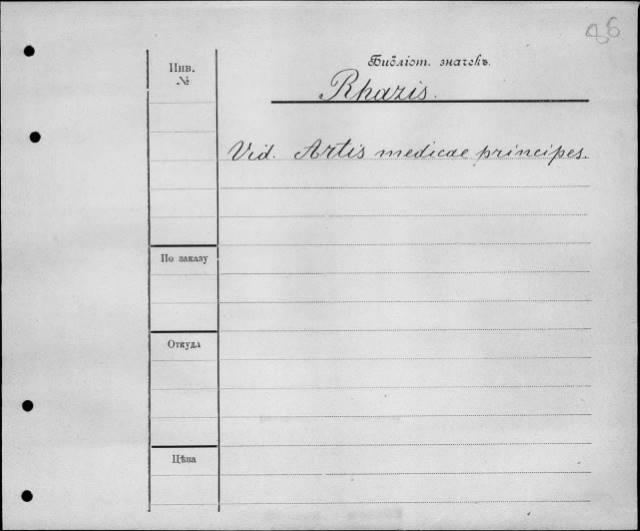 86
Библіот. значекъ.
Rhazis.
Инв.
№
Vid. Artis medicae principes.
По заказу
Откуда
Цѣна